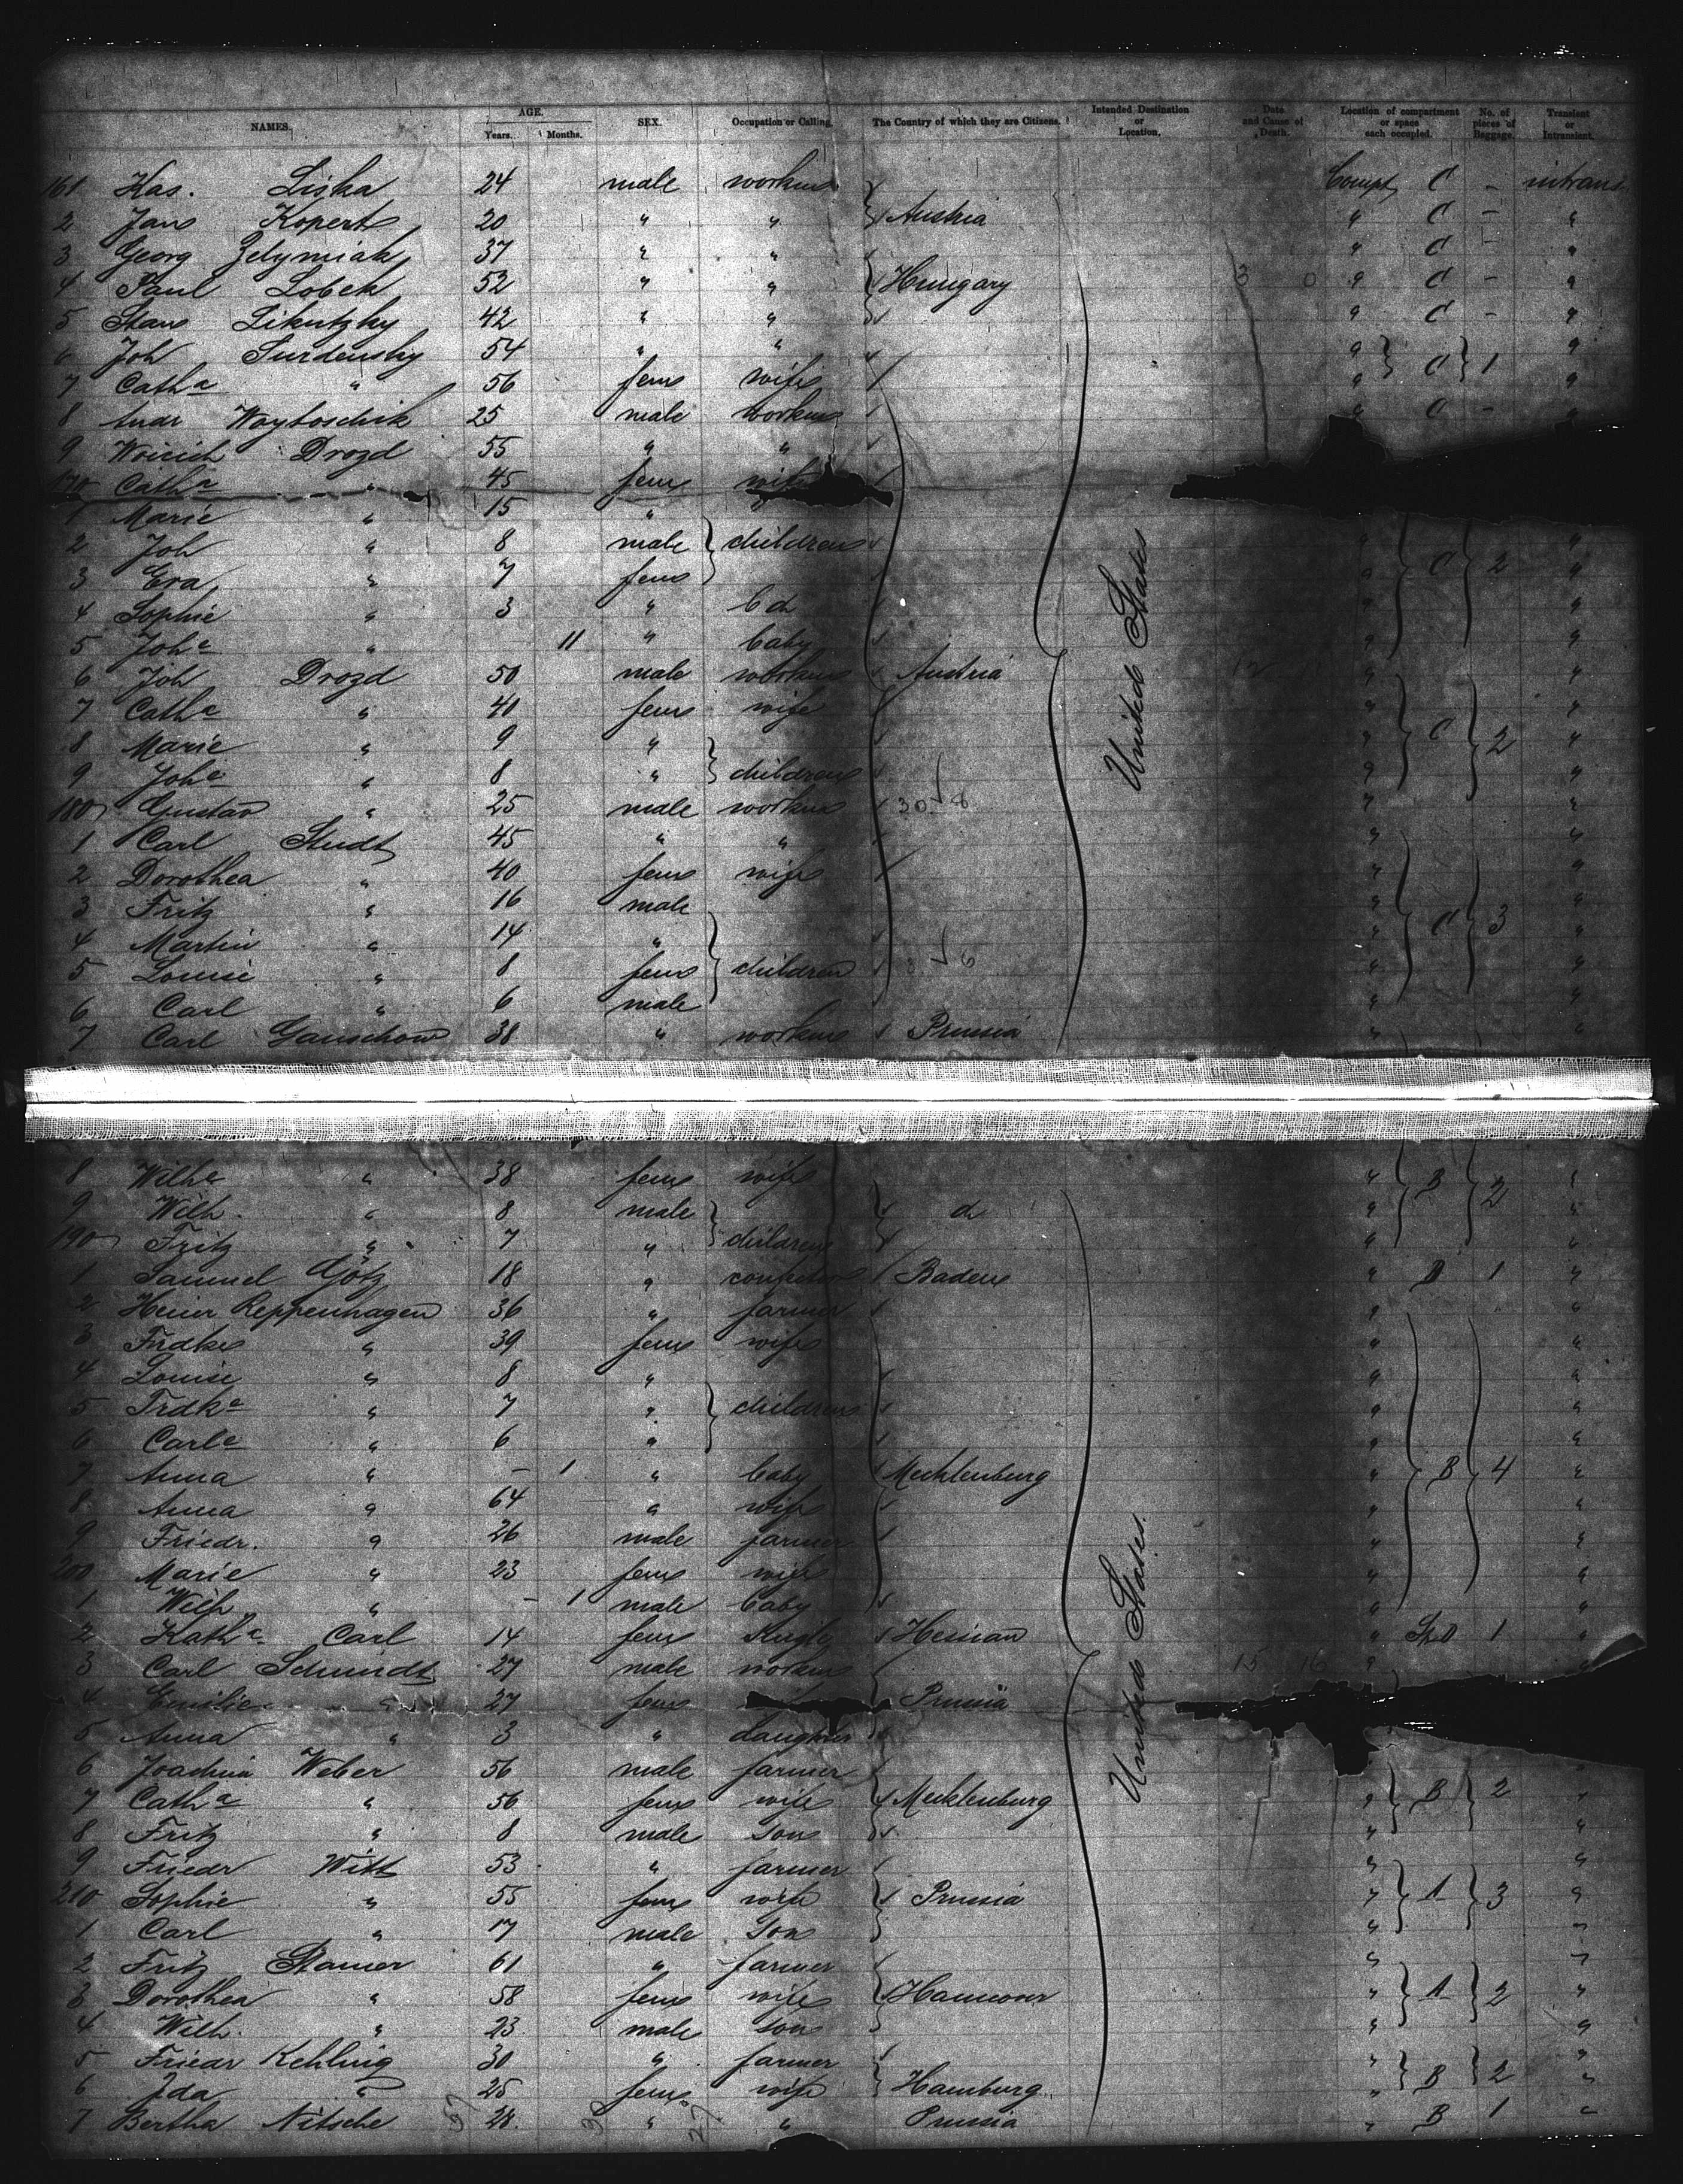 NAMES. AGE. Years. Months. SEX. Occupation or Calling. The Country of which they are Citizens. Intended Destination or Location. Date and Cause of Death. Location of compartment or space each occupied. No. of pieces of Baggage. Transient or Intransient.
161 Kas. Liska 24 male workm Compt C - intrans
2 Jan Kopert 20 " " Austria " C - "
3 Georg 37 " " " C - "
4 Paul Lobek 52 " " Hungary " C - "
5 Stan 42 " " " C - "
6 Joh 54 " " " "
7 Catha " 56 fem wife " C 1 "
8 Andr Woytoschik 25 male workm " C - "
9 Drozd 55 " "
170 Catha " 45 fem wife
1 Marie " 15 "
2 Joh " 8 male children " "
3 Eva " 7 fem " C 2 "
4 Sophie " 3 " " "
5 Joha " 11 " baby " "
6 Joh Drozd 50 male workm Austria 12 " "
7 Catha " 40 fem wife " "
8 Marie " 9 " " C 2 "
9 Joha " 8 " children " "
180 Gustav " 25 male workm " "
1 Carl Studt 45 " " " "
2 Dorothea " 40 fem wife " "
3 Fritz " 16 male " "
4 Martin " 14 " " C 3 "
5 Louise " 8 fem children " "
6 Carl " 6 male " "
7 Carl Ganschow 38 " workm Prussia " "
United States
8 Wilha " 38 fem wife " B 2 "
9 Wilh. " 8 male do " "
190 Fritz " 7 " children " "
1 Samuel Götz 18 " Baden " B 1 "
2 Heinr Reppenhagen 36 " farmer " "
3 Frdke " 39 fem wife " "
4 Louise " 8 " " "
5 Frdka " 7 " children " "
6 Carla " 6 " " "
7 Anna " - 1 " baby Mecklenburg " B 4 "
8 Anna " 64 " wife " "
9 Friedr. " 26 male farmer " "
200 Marie " 23 fem wife " "
1 Wilh. " - 1 male baby " "
2 Katha Carl 14 fem Single Hessian " 1 "
3 Carl Schmidt 27 male workm 15 16 "
4 Emilie " 27 fem Prussia
5 Anna " 3 " daughter
6 Joachim Weber 56 male farmer "
7 Catha " 56 fem wife Mecklenburg " B 2 "
8 Fritz " 8 male son " "
9 Friedr Witt 53 " farmer " "
210 Sophie " 55 fem wife Prussia " A 3 "
1 Carl " 17 male Son " "
2 Fritz Stamer 61 " farmer " "
3 Dorothea " 58 fem wife Hannover " A 2 "
4 Wilh. " 23 male son " "
5 Friedr Kehling 30 " farmer " "
6 Ida " 25 fem wife Hamburg " B 2 "
7 Bertha Nitsche 28 " " Prussia " B 1 "
United States.